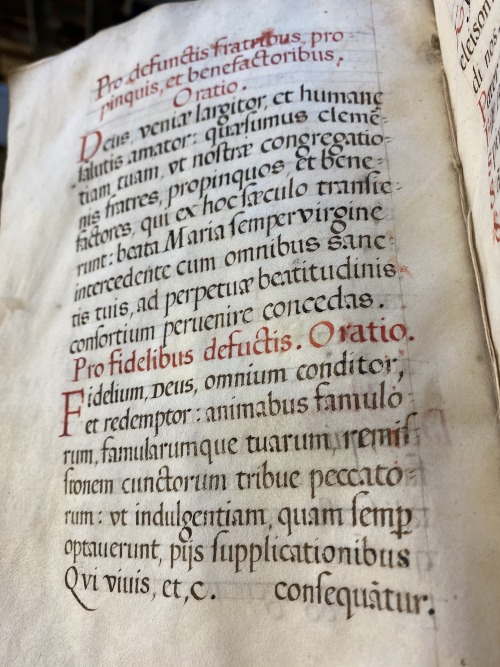 Pro defunctis fratribus, pro-
pinquis, et benefactoribus.
Oratio.
Deus, veniæ largitor, et humanę
ſalutis amator: quæſumus clemē-
tiam tuam, vt noſtræ congregatio-
nis fratres, propinquos et bene-
factores, qui ex hoc ſæculo tranſie-
runt: beata Maria ſemper virgine
intercedente cum omnibus ſanc-
tis tuis, ad perpetuæ beatitudinis
conſortium peruenire concedas.
Pro fidelibus defuctis. Oratio.
Fidelium, Deus, omnium conditor,
et redemptor: animabus famulo-
rum, famularumque tuarum, remiſ-
ſionem cunctorum tribue peccato-
rum: vt indulgentiam, quam ſemꝑ
optauerunt, pijs ſupplicationibus
Qvi viuis, et,c. conſequātur.
eleison
di nos